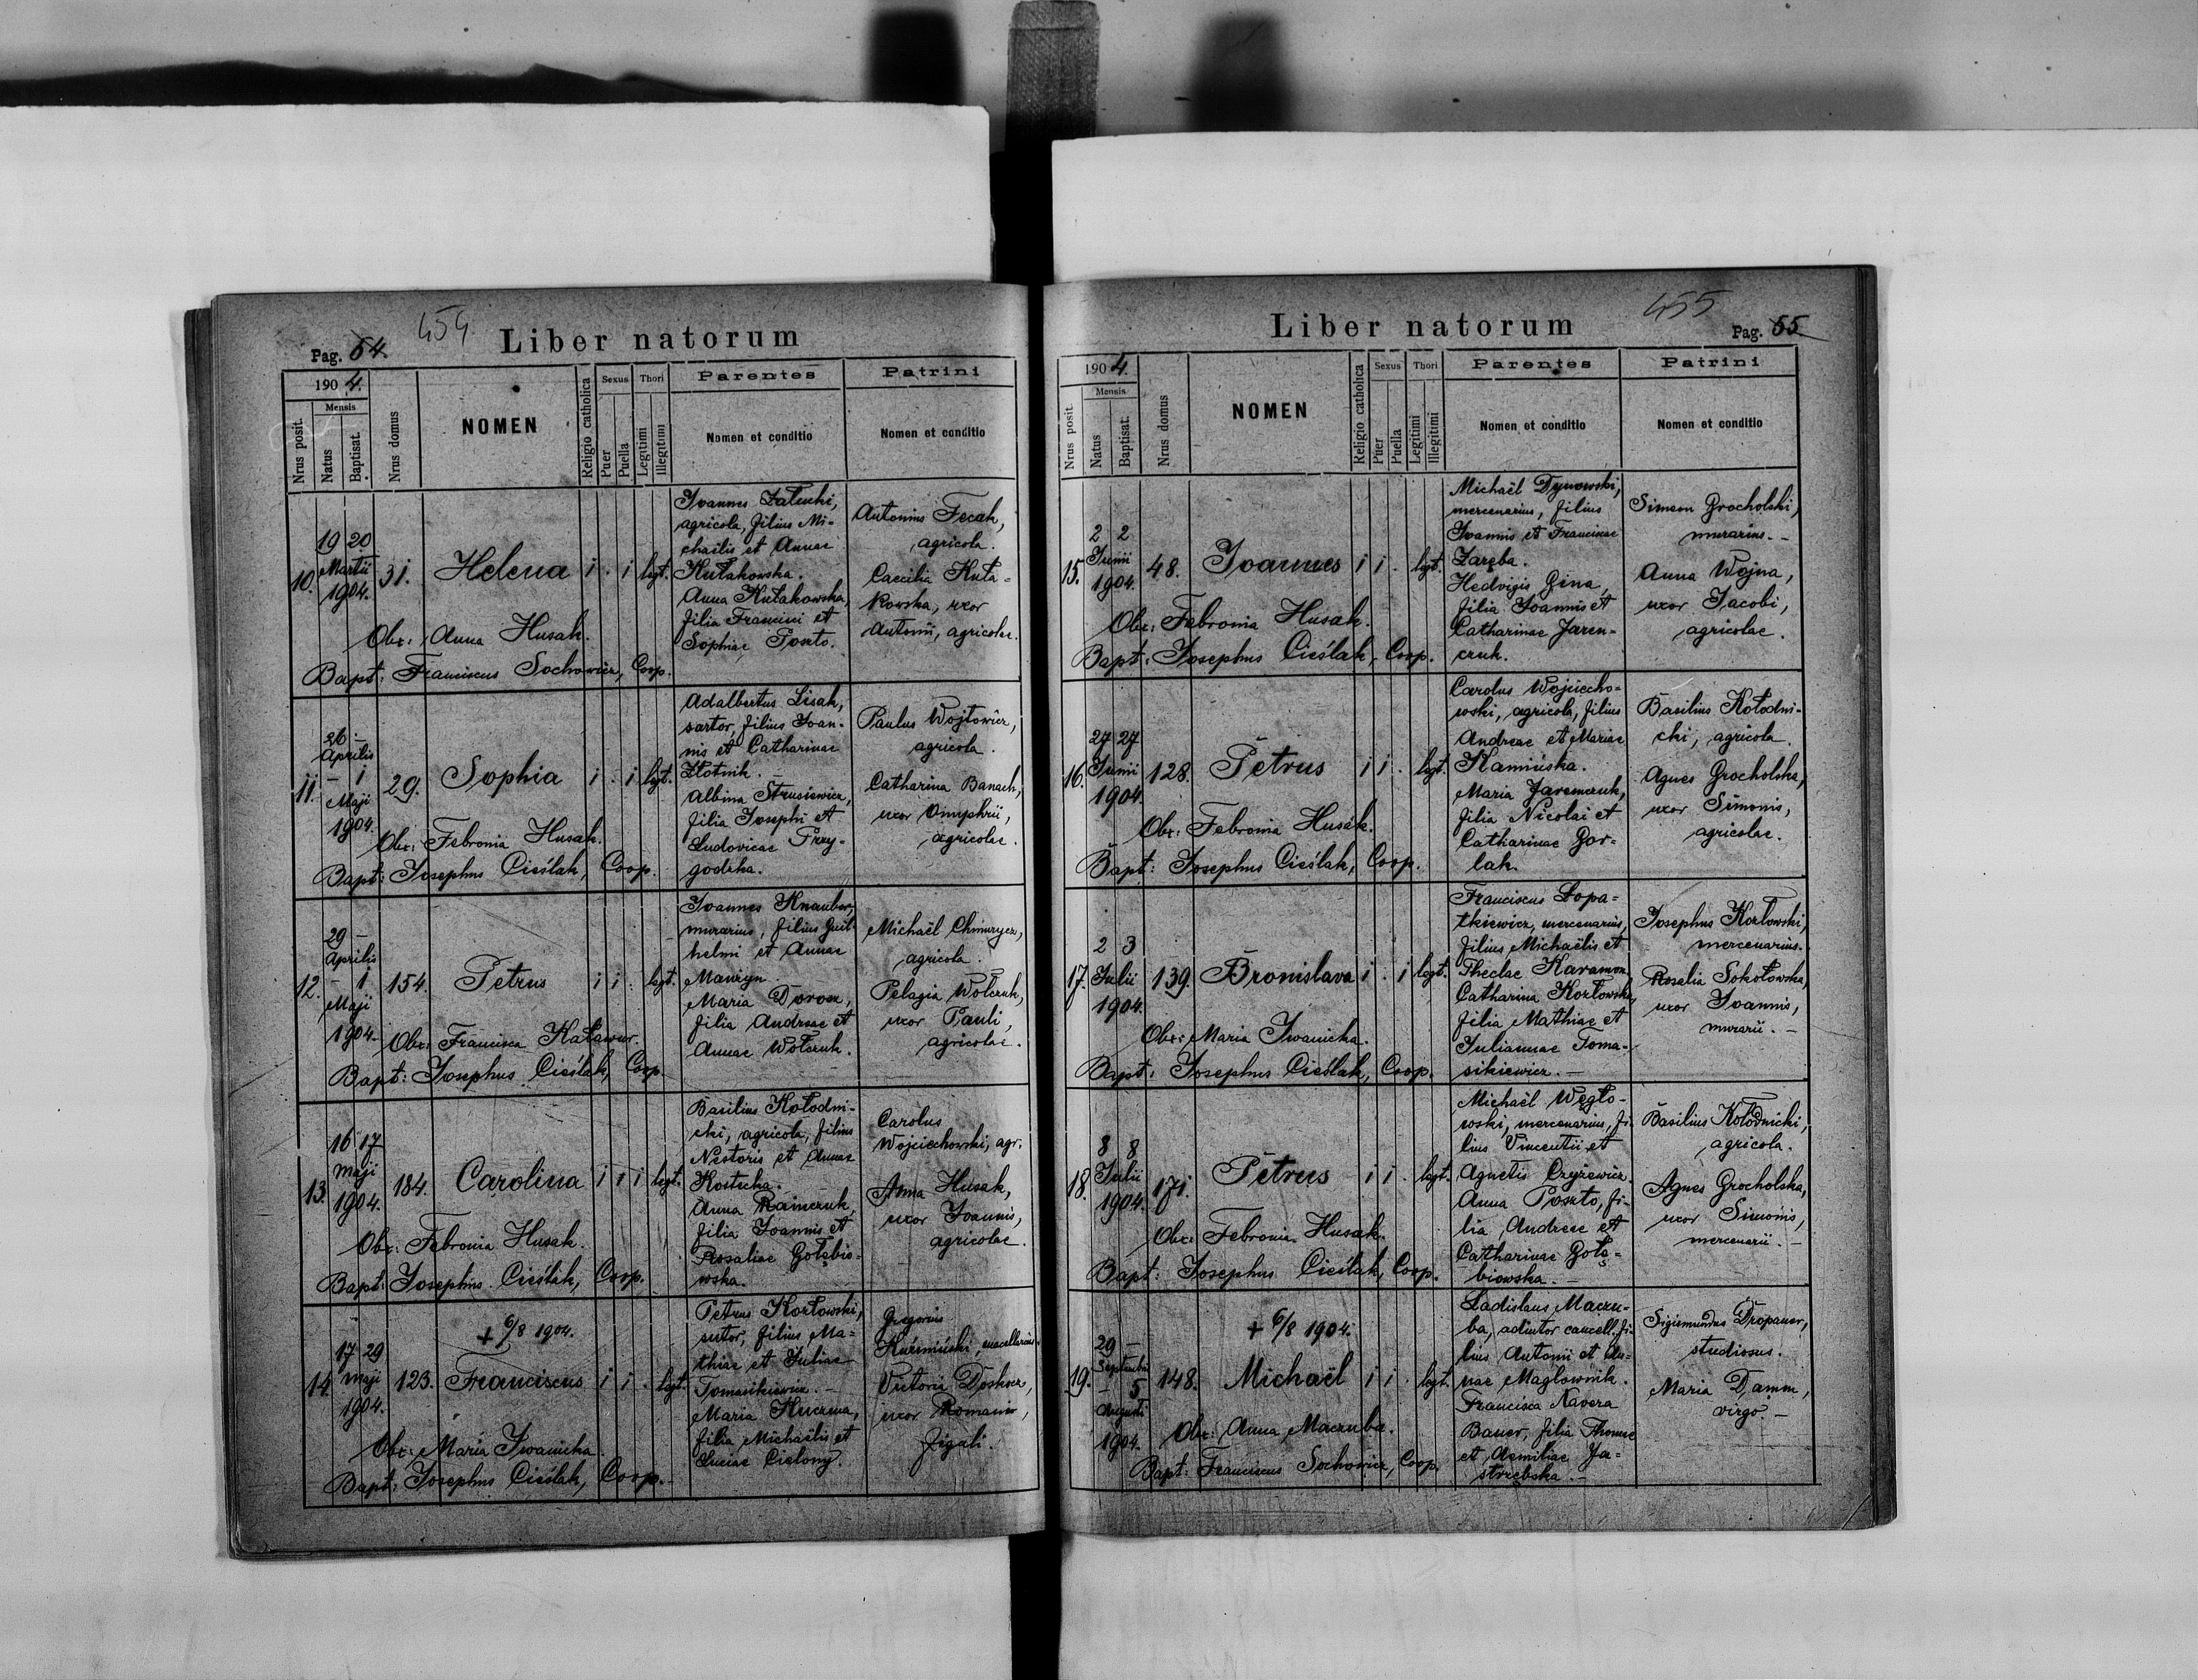 454
Pag. 54.
Liber natorum
1904.
Nrus posit.
Mensis
Natus
Baptisat.
Nrus domus
NOMEN
Religio catholica
Sexus
Puer
Puella
Thori
Legitimi
Illegitimi
Parentes
Nomen et conditio
Patrini
Nomen et conditio
10.
19 20
Martii
1904.
31.
Helena
i . i legt.
Obx: Anna Husak.
Bapt: Franciscus Sochowicz, Coop.
Joannes Załucki,
agricola, filius Mi-
chaëlis et Annae
Kułakowska.
Anna Kułakowska,
filia Francisci et
Sophiae Poszto.
Antonius Fecak,
agricola.
Caecilia Kuła-
kowska, uxor
Antonii, agricolae.
11.
26 -
Aprilis
- 1
Maji
1904.
29.
Sophia
i . i legt.
Obx: Febronia Husak.
Bapt: Josephus Cieślak, Coop.
Adalbertus Lisak,
sartor, filius Joan-
nis et Catharinae
Złotnik. -
Albina Strusiewicz,
filia Josephi et
Ludovicae Przy-
godzka.
Paulus Wojtowicz,
agricola.
Catharina Banach,
uxor Onuphrii,
agricolae.
12.
29 -
Aprilis
- 1
Maji
1904.
154.
Petrus
i i . legt.
Obx: Francisca Kaławur.
Bapt: Josephus Cieślak, Coop.
Joannes Knauber,
murarius, filius Guil-
helmi et Annae
Mauryn.
Maria Dorosz,
filia Andreae et
Annae Wołczuk.
Michaël Chmurycz,
agricola.
Pelagia Wołczuk,
uxor Pauli,
agricolae.
13.
16 17
Maji
1904.
184.
Carolina
i i i legt.
Obx: Febronia Husak.
Bapt: Josephus Cieślak, Coop.
Basilius Kołodni-
cki, agricola, filius
Nestoris et Annae
Kostecka.
Anna Rainczuk,
filia Joannis et
Rosaliae Gołębio-
wska.
Carolus
Wojciechowski, agr.
Anna Husak,
uxor Joannis,
agricolae.
14.
17 29
Maji
1904.
123.
+ 6/8 1904.
Franciscus
i i . legt.
Obx: Maria Iwanicka.
Bapt: Josephus Cieślak, Coop. -
Petrus Kozłowski,
sutor, filius Ma-
thiae et Juliae
Tomasikiewicz. -
Maria Kuczma,
filia Michaëlis et
Luciae Cielony.
Gregorius
Kuźmiński, macellarius.
Victoria
uxor Romani,
figuli.
455
Liber natorum
Pag. 55
1904.
Nrus posit.
Mensis
Natus
Baptisat.
Nrus domus
NOMEN
Religio catholica
Sexus
Puer
Puella
Thori
Legitimi
Illegitimi
Parentes
Nomen et conditio
Patrini
Nomen et conditio
15.
2 2
Junii
1904.
48.
Joannes
i i . legt.
Obx: Febronia Husak.
Bapt: Josephus Cieślak, Coop.
Michaël Dynowski,
mercenarius, filius
Joannis et Franciscae
Zaręba.
Hedvigis Gina,
filia Joannis et
Catharinae Jarem-
czuk.
Simeon Grocholski,
murarius. -
Anna Wojna,
uxor Jacobi,
agricolae.
16.
27 27
Junii
1904.
128.
Petrus
i i . legt.
Obx: Febronia Husak.
Bapt: Josephus Cieślak, Coop.
Carolus Wojciecho-
wski, agricola, filius
Andreae et Mariae
Kamińska.
Maria Jaremczuk,
filia Nicolai et
Catharinae Gor-
lak.
Basilius Kołodni-
cki, agricola.
Agnes Grocholska,
uxor Simonis,
agricolae.
17.
2 3
Julii
1904.
139.
Bronislava
i . i legt.
Obx: Maria Iwanicka.
Bapt: Josephus Cieślak, Coop.
Franciscus Łopa-
tkiewicz, mercenarius,
filius Michaëlis et
Theclae Karamon.
Catharina Kozłowska,
filia Mathiae et
Juliannae Toma-
sikiewicz. -
Josephus Kozłowski,
mercenarius.
Rosalia Sokołowska,
uxor Joannis,
murarii. -
18.
8 8
Julii
1904.
171.
Petrus
i i . legt.
Obx: Febronia Husak.
Bapt: Josephus Cieślak, Coop.
Michaël Węgło-
wski, mercenarius, fi-
lius Vincentii et
Agnetis Czyżewicz.
Anna Poszto, fi-
lia Andreae et
Catharinae Gołę-
biowska. -
Basilius Kołodnicki,
agricola.
Agnes Grocholska,
uxor Simonis,
mercenarii. -
19.
29 -
Septembris
- 5
Augusti
1904.
148.
+ 6/8 1904.
Michaël
i i . legt.
Obx: Anna Maczuba.
Bapt: Franciscus Sochowicz, Coop.
Ladislaus Maczu-
ba, adiutor cancell. fi-
lius Antonii et An-
nae Maglownik.
Francisca Xavera
Bauer, filia Thomae
et Aemiliae Ja-
strzębska. -
Sigismundus Dropauer,
studiosus.
Maria Damm,
virgo. -